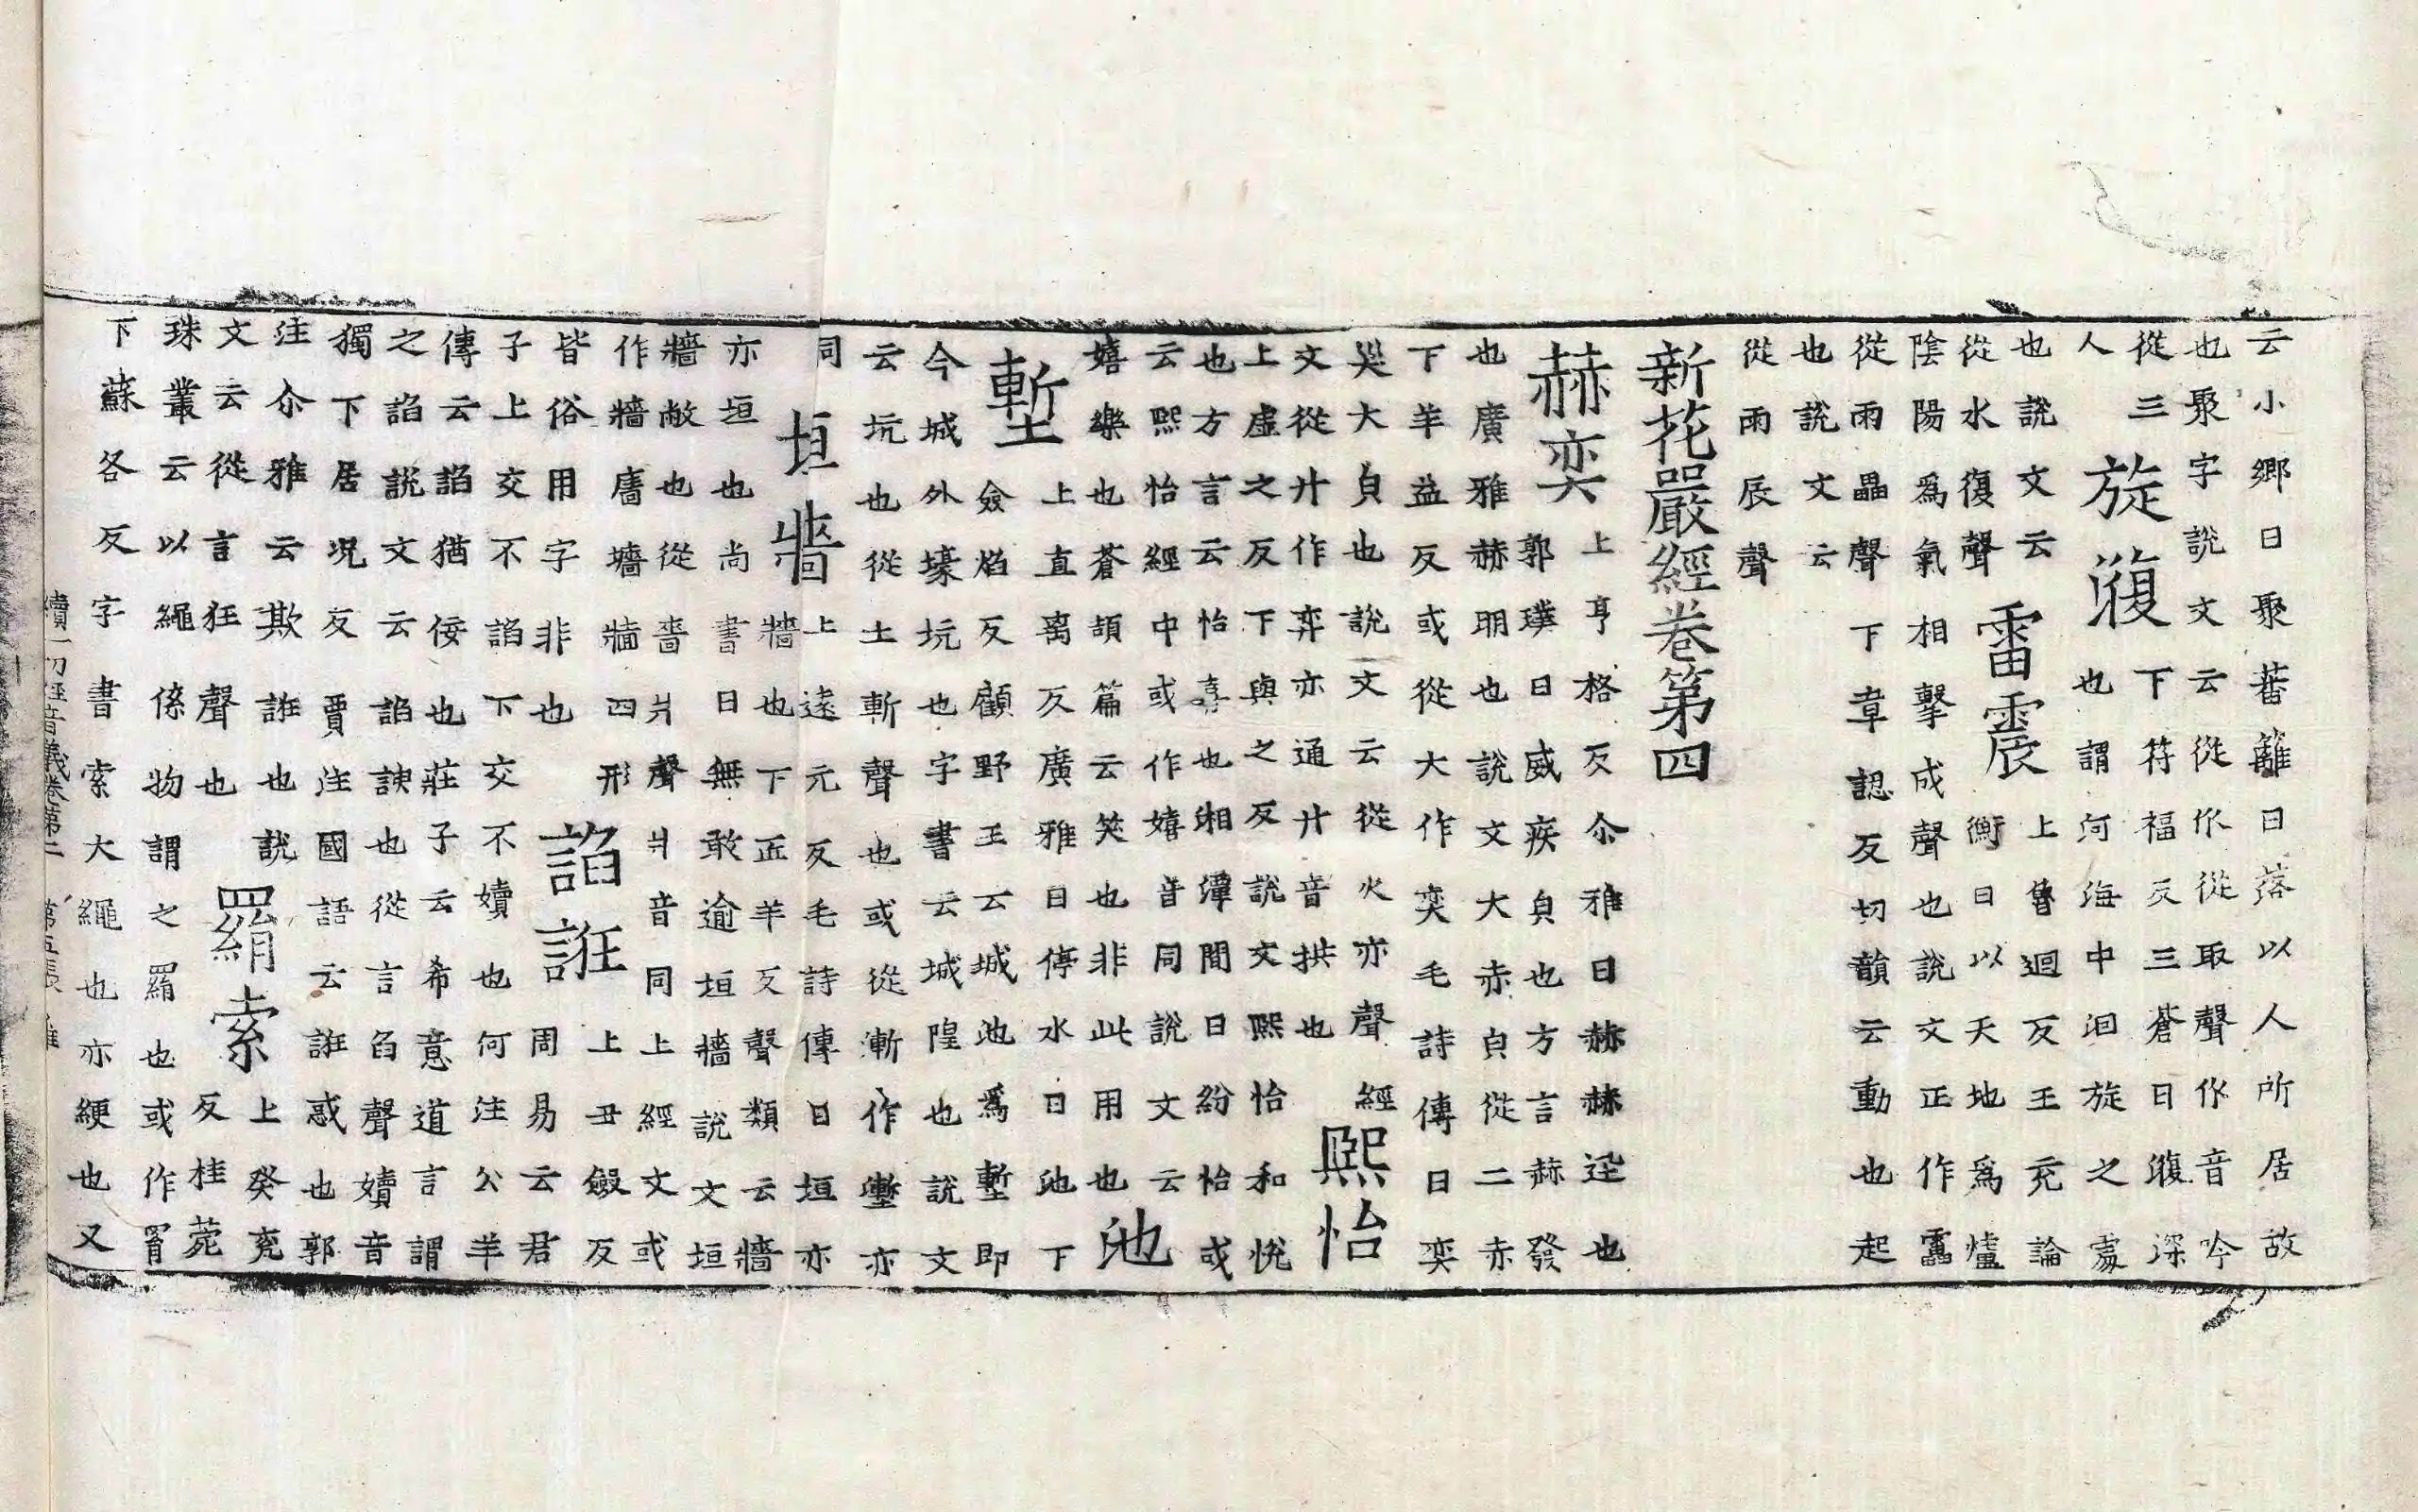 云小鄉曰聚蕃籬曰落以人所居故
也聚字說文云從㐺從取聲㐺音吟
從三
人
旋澓
下符福反三蒼曰澓深
也謂河海中洄旋之處
也說文云
從水復聲
雷震
上魯迴反王充論
衡曰以天地爲爐
陰陽爲氣相擊成聲也說文正作靁
從雨畾聲下章認反切韻云動也起
也說文云
從雨辰聲
新花嚴經卷第四
赫奕
上亨格反尒雅曰赫赫迅也
郭璞曰威疾皃也方言赫發
也廣雅赫明也說文大赤皃從二赤
下羊益反或從大作奕毛詩傳曰奕
奕大皃也說文云從火亦聲經
文從廾作弈亦通廾音拱也
熙怡
上虛之反下與之反說文熙怡和悅
也方言云怡喜也湘潭間曰紛怡或
云熙怡經中或作嬉音同說文云
嬉樂也蒼頡篇云笑也非此用也
池
塹
上直离反廣雅曰停水曰池下
僉焰反顧野王云城池爲塹即
今城外壕坑也字書云城隍也說文
云坑也從土斬聲也或從漸作壍亦
同
垣牆
上遠元反毛詩傳曰垣亦
牆也下正羊反聲類云牆
亦垣也尚書曰無敢逾垣牆說文垣
牆敝也從嗇爿聲爿音同上經文或
作牆廧墻牆四形
皆俗用字非也
諂誑
上丑斂反
周易云君
子上交不諂下交不嬻也何注公羊
傳云諂猶佞也莊子云希意道言謂
之諂說文云諂諛也從言臽聲嬻音
獨下居況反賈注國語云誑惑也郭
注尒雅云欺誑也說
文云從言狂聲也
羂索
上癸兖
反桂菀
珠叢云以繩係物謂之羂也或作罥
下蘇各反字書索大繩也亦綆也又
續一切經音義卷第二 第五張